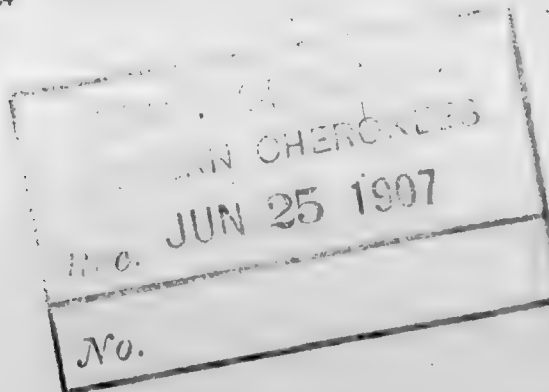 CHEROKEES
JUN 25 1907
No.